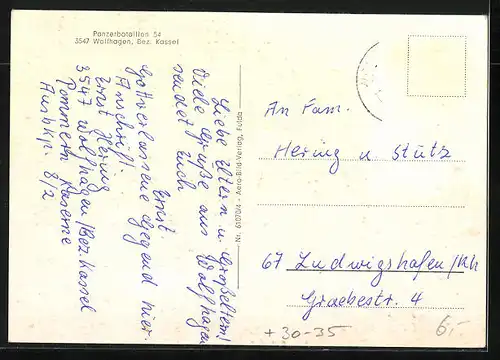 Panzerbataillon 54
3547 Wolfhagen, Bez. Kassel
Liebe Eltern u. Großeltern!
Viele Grüße aus Wolfhagen
sendet Euch
Ernst.
Gottverlassene Gegend hier.
Anschrift:
Ernst Hering
3547 Wolfhagen/Bez. Kassel
Pommern Kaserne
Ausb. Kp. 8/2
Nr. 61010/4 - Aero-Bild-Verlag, Fulda
An Fam.
Hering u Stütz
67 Ludwigshafen/Rh
Graebestr. 4
+30-35
6,-